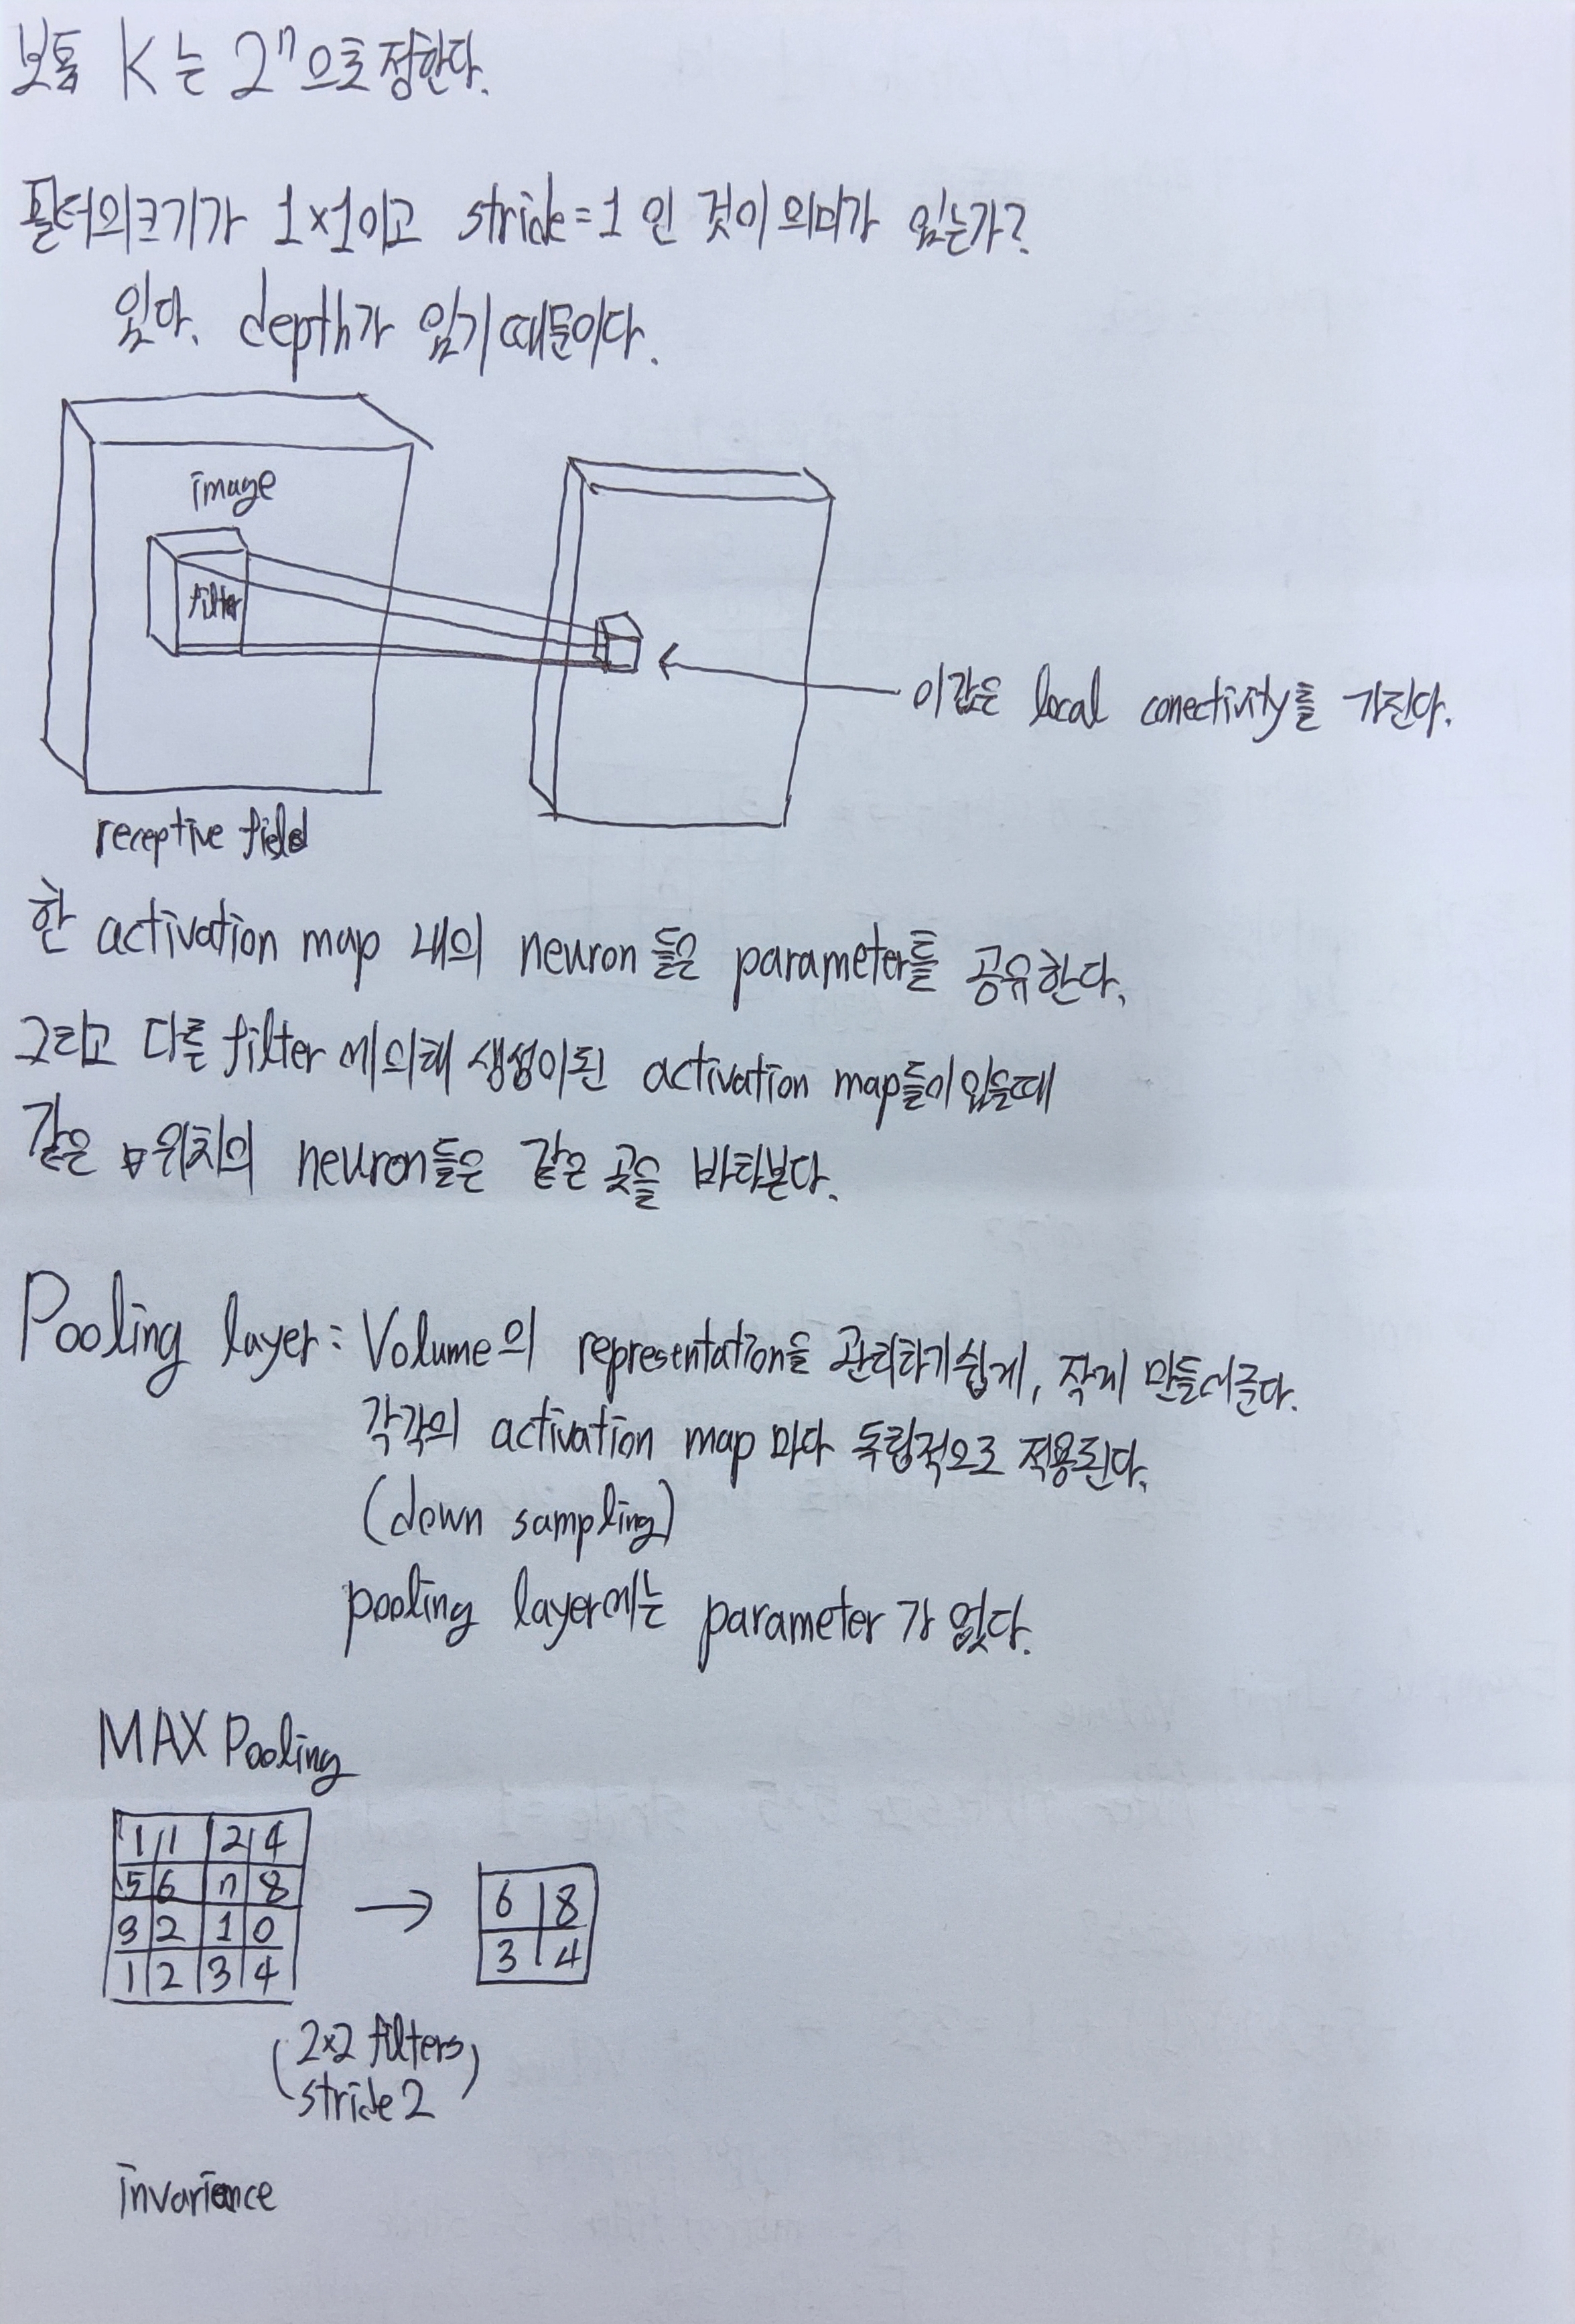 보통 K는 2ⁿ으로 정한다.
필터의 크기가 1×1이고 stride=1 인 것이 의미가 있는가?
있다. depth가 있기 때문이다.
image
filter
이 값은 local conectivity를 가진다.
receptive field
한 activation map 내의 neuron들은 parameter를 공유한다.
그리고 다른 filter에 의해 생성이된 activation map들이 있을때
같은 위치의 neuron들은 같은 곳을 바라본다.
Pooling layer: Volume의 representation을 관리하기 쉽게, 작게 만들어준다.
각각의 activation map 마다 독립적으로 적용된다.
(down sampling)
pooling layer에는 parameter가 없다.
MAX Pooling
1 1 2 4
5 6 7 8
3 2 1 0
1 2 3 4
→
6 8
3 4
(2×2 filters
stride 2)
invariance